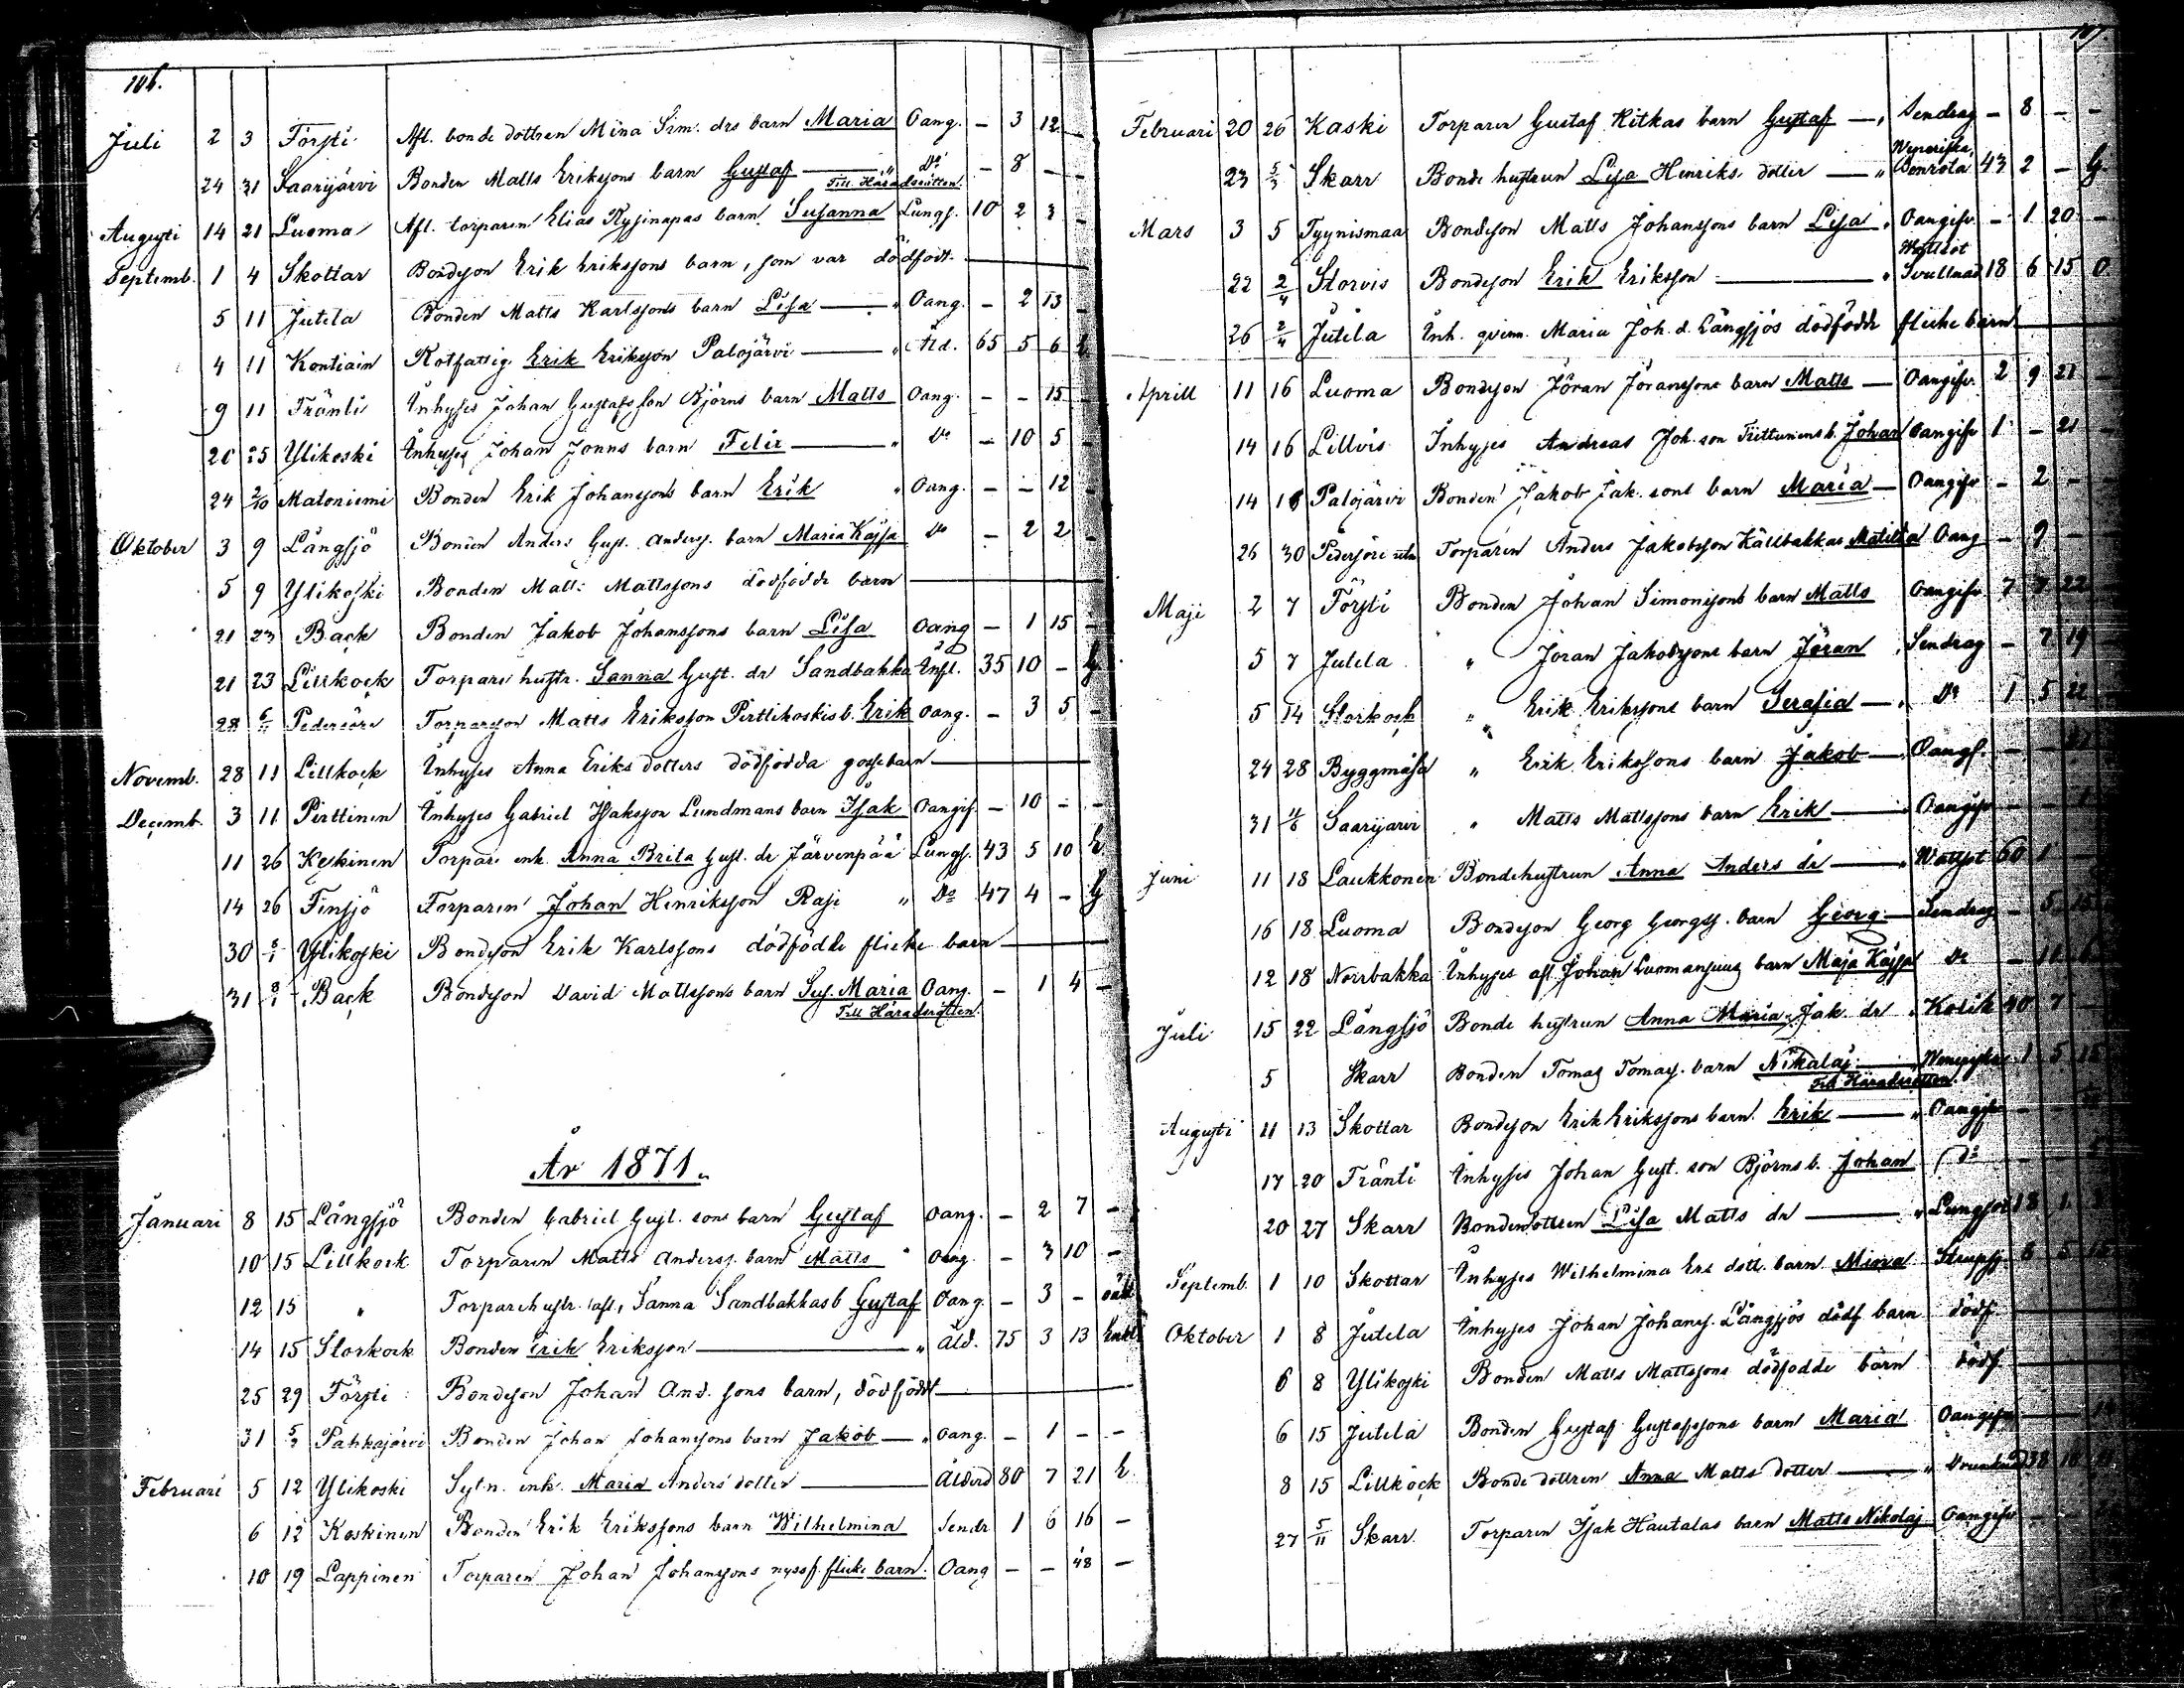 106.
Juli 2 3 Försti Afl. bonde dottren Mina Sim. drs barn Maria Oang. - 3 12 -
24 31 Saarijärvi Bonden Matts Erikssons barn Gustaf — " Do - 8 - -
Till Häradsrätten.
Augusti 14 21 Luoma Afl. torparen Elias Rysinapas barn Susanna Lungs. 10 2 3 -
Septemb. 1 4 Skottar Bondeson Erik Erikssons barn, som var dödfödt.
5 11 Jutila Bonden Matts Karlssons barn Lisa — " Oang. - 2 13 -
4 11 Kontiain Rotfattig Erik Eriksson Palojärvi — " Åld. 65 5 6
9 11 Tränti Inhyses Johan Gustafsson Björns barn Matts Oang. - - 15 -
20 25 Ylikoski Inhyses Johan Jonns barn Felix — " Do - 10 5 -
24 2/10 Matoniemi Bonden Erik Johanssons barn Erik " Oang. - - 12 -
Oktober 3 9 Långsjö Bonden Anders Gust. anders. barn Maria Kajsa Do - 2 2 -
5 9 Ylikoski Bonden Matts Mattssons dödfödde barn
21 23 Back Bonden Jakob Johanssons barn Lisa Oang - 1 15 -
21 23 Lillkock Torpare hustr. Sanna Gust. dr Sandbakka Infl. 35 10 - G
28 6/11 Pedersöre Torpareson Matts Eriksson Pirttikoskis b. Erik Oang. - 3 5 -
Novemb. 28 11 Lillkock Inhyses Anna Eriks dotters dödfödda gossebarn
Decemb. 3 11 Pirttinen Inhyses Gabriel Isaksson Lundmans barn Isak Oangif. - 10 - -
11 26 Keskinen Torpare enk. Anna Brita Gust. dr Järvenpää Lungs. 43 5 10 E
14 26 Finsjö Torparen Johan Henriksson Raji " Do 47 4 - G
30 8/1 Ylikoski Bondeson Erik Karlssons dödfödde flicke barn
31 8/1 Back Bondeson David Mattssons barn Sus. Maria Oang. - 1 4 -
Till Häradsrätten.
År 1871.
Januari 8 15 Långsjö Bonden Gabriel Gust. sons barn Gustaf Oang. - 2 7 -
10 15 Lillkock Torparen Matts Anderss. barn Matts " Oang. - 3 10 -
12 15 " Torparehustr. afl. Sanna Sandbakkas b Gustaf Oang. - 3 - oäkt
14 15 Storkock Bonden Erik Eriksson — " Åld. 75 3 13 Enkl.
25 29 Försti Bondeson Johan And. sons barn, dödfödt
31 5/2 Pahkajärvi Bonden Johan Johanssons barn Jakob — " Oang. - 1 - -
Februari 5 12 Ylikoski Sytn. enk. Maria Anders dotter — Ålderd 80 7 21 E.
6 12 Koskinen Bonden Erik Erikssons barn Wilhelmina Sendr 1 6 16 -
10 19 Lappinen Torparen Johan Johanssons nyssf. flicke barn. Oang - - 48 -
107.
Februari 20 26 Kaski Torparen Gustaf Ritkas barn Gustaf — " Sendrag - 8 - -
23 5/3 Skarr Bonde hustrun Lisa Henriks dotter — " Weneriska Benröta 43 2 - G.
Mars 3 5 Tyynismaa Bondeson Matts Johanssons barn Lisa " Oangifv. - 1 20 -
22 2/4 Storvis Bondeson Erik Eriksson — " Wattsot Svullnad 18 6 15 O
26 2/4 Jutila Inh. qvinn. Maria Joh. d. Långsjös dödfödde flicke barn
Aprill 11 16 Luoma Bondeson Jöran Jöranssons barn Matts — Oangifv. 2 9 21 -
14 16 Lillvis Inhyses Andreas Joh. son Tiittunens b. Johan Oangifv 1 - 21 -
14 16 Palojärvi Bonden Jakob Jak. sons barn Maria — Oangifv - 2 - -
26 30 Pedersöre Torparen Anders Jakobsson Källbakkas Matilda Oang - 9 -
Maji 2 7 Försti Bonden Johan Simonssons barn Matts Oangifv 7 22
5 7 Jutila " Jöran Jakobssons barn Jöran " Sendrag - 7 19
5 14 Storkock " Erik Erikssons barn Serafia — " Do 1 5 22
24 28 Byggmäsa " Erik Erikssons barn Jakob — " Oangf. - -
31 4/6 Saarijarvi " Matts Mattssons barn Erik — " Oangifv - -
Juni 11 18 Laukkonen Bondehustrun Anna Anders dr — " Wattsot 60 1 -
16 18 Luoma Bondeson Georg Georgss. barn Georg — Sendrag - 5 15
12 18 Norrbakka Inhyses afl Johan Luomansuus barn Maja Kajsa Do - 11 6
Juli 15 22 Långsjö Bonde hustrun Anna Maria Jak. dr " Kolik 40 7 -
5 Skarr Bonden Tomas Tomas. barn Nikolaj — " Weneriska 1 5 15
Till Häradsrätten.
Augusti 11 13 Skottar Bondeson Erik Erikssons barn Erik — " Oangifv - -
17 20 Tränti Inhyses Johan Gust. son Björns b. Johan Do
20 27 Skarr Bondedottren Lisa Matts dr — " Lungsot 18 1
Septemb. 1 10 Skottar Inhyses Wilhelmina Ers dott. barn Mina Strupsj. 8 5
Oktober 1 8 Jutila Inhyses Johan Johans. Långsjös dödf barn dödf
6 8 Ylikoski Bonden Matts Mattssons dödfödde barn dödf
6 15 Jutila Bonden Gustaf Gustafssons barn Maria Oangifv
8 15 Lillkock Bonde dottren Anna Matts dotter — " 38 10
27 5/11 Skarr. Torparen Isak Hautalas barn Matts Nikolaj Oangifv